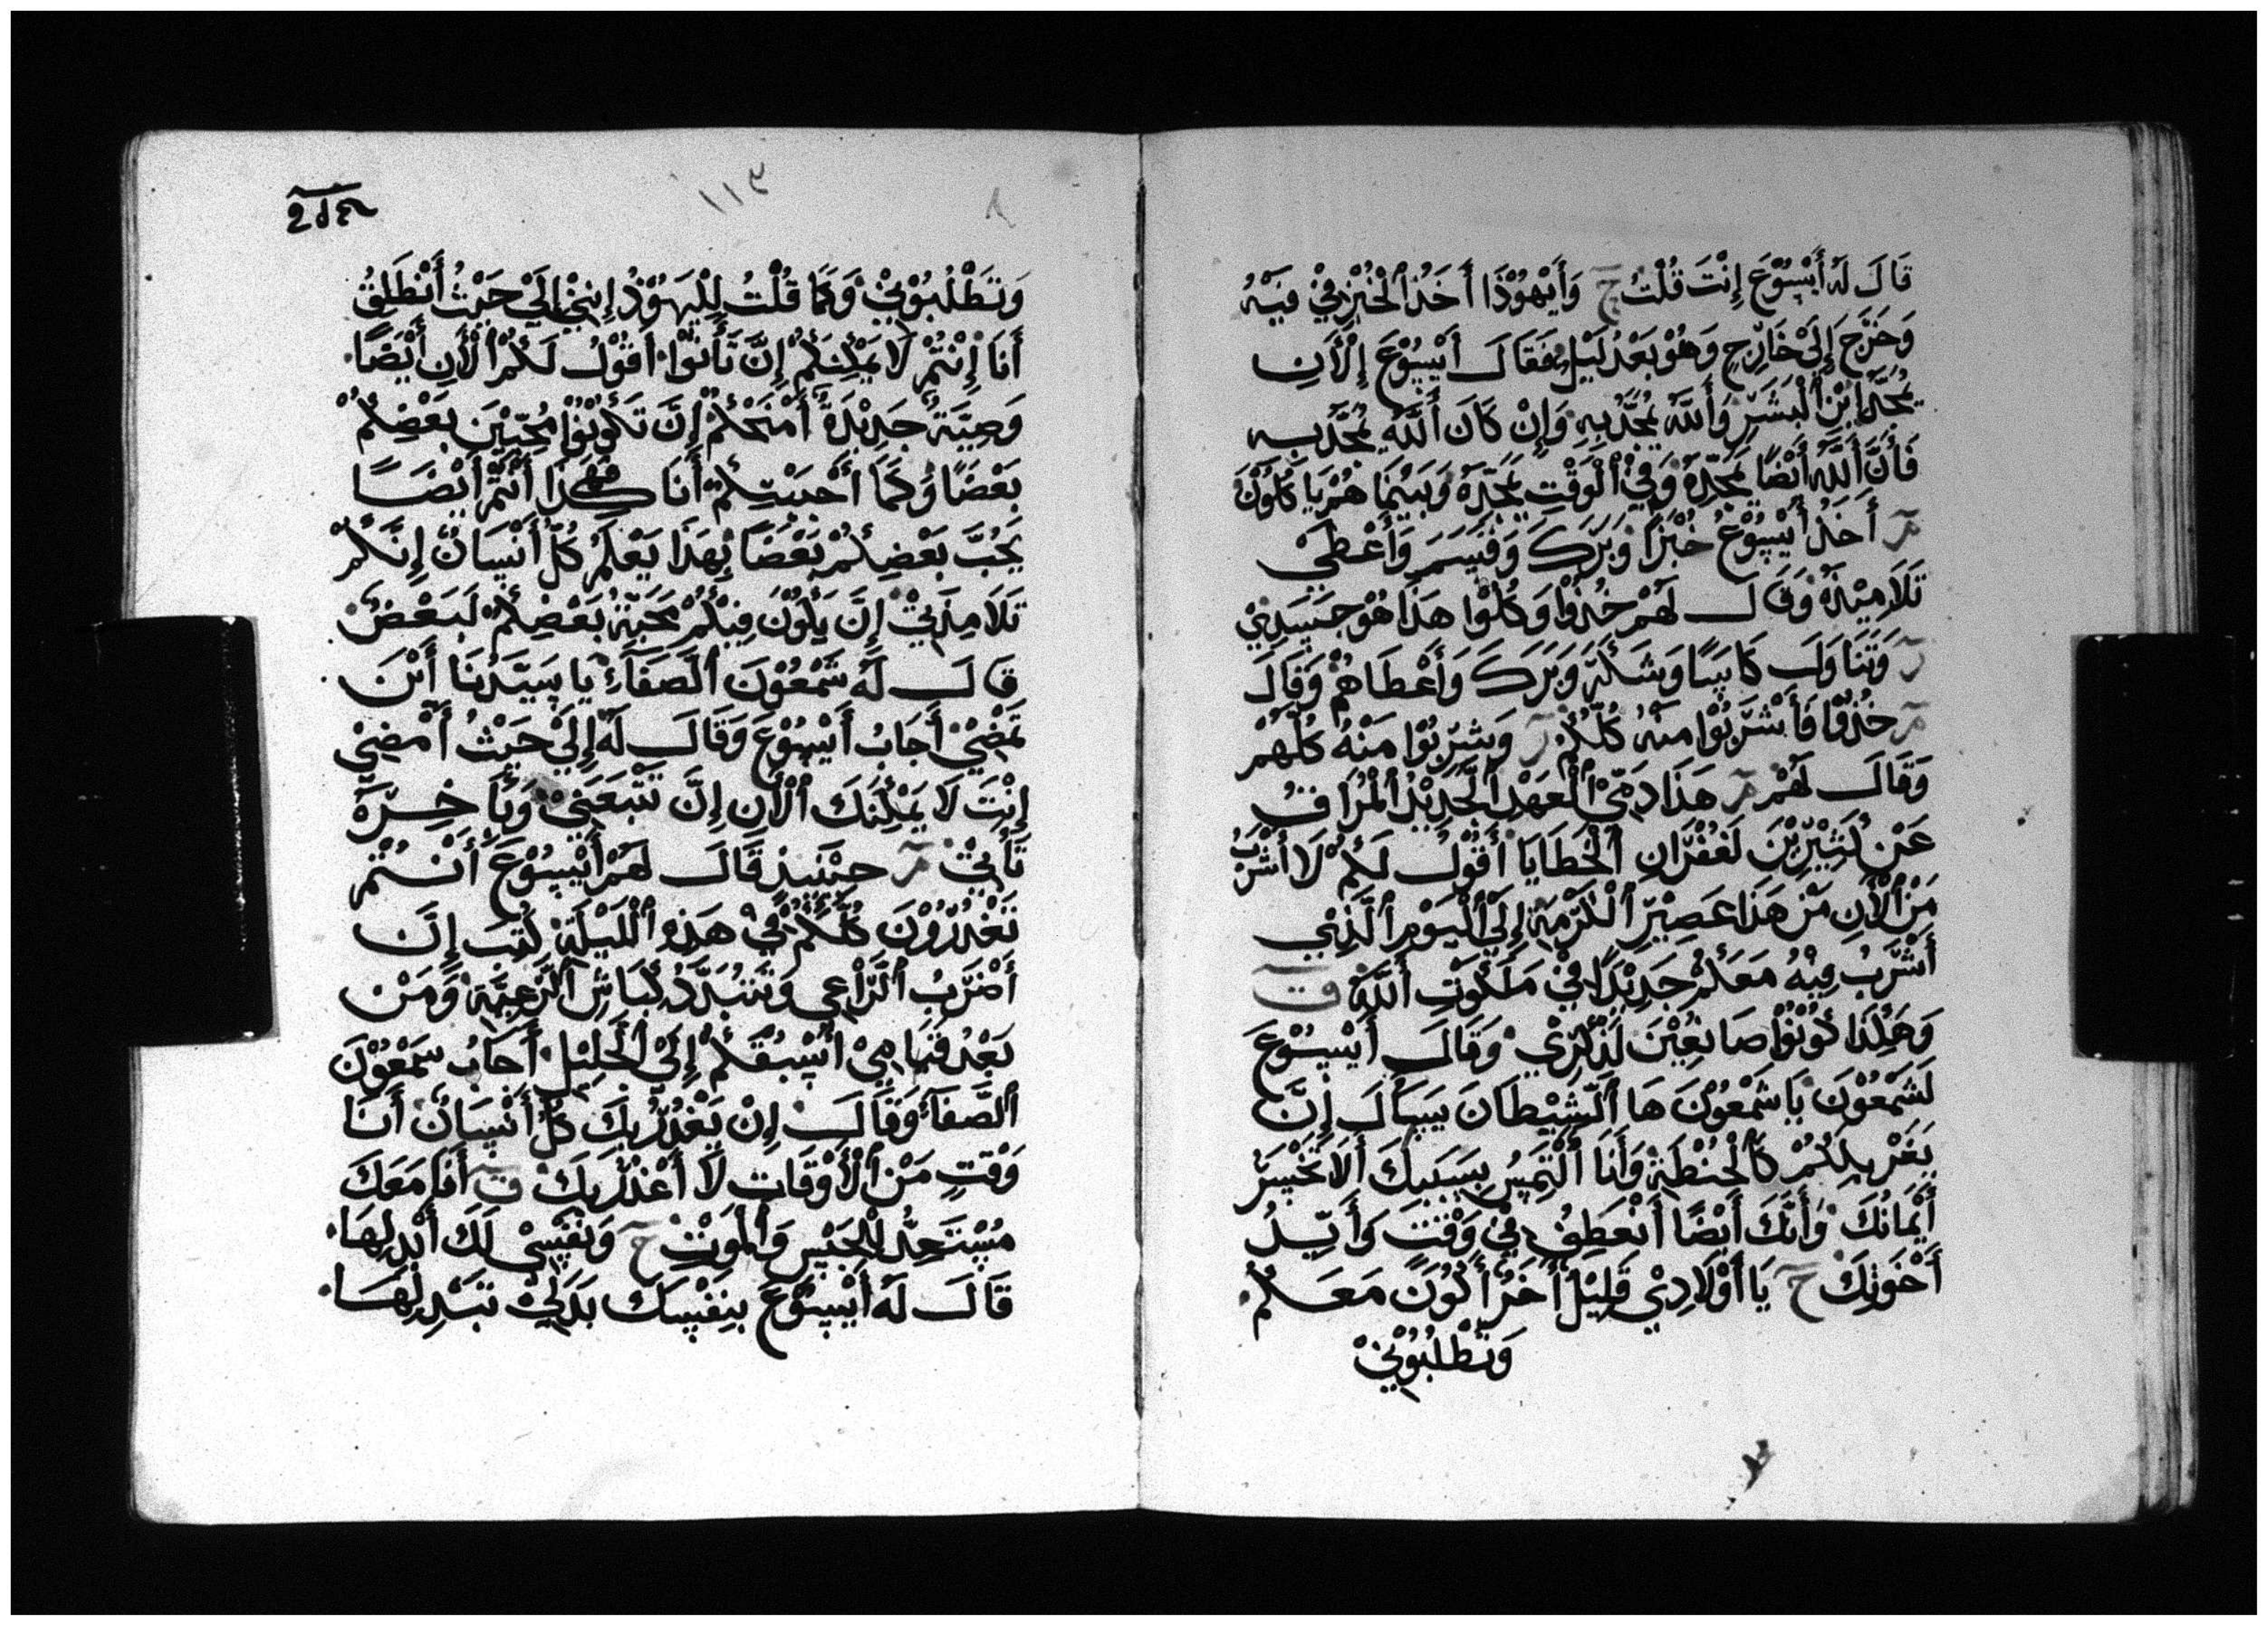 قَالَ لَهُ أَيْسُوْعَ إِنْتَ قُلْتُ ح وَأَيْهُوْذَا أَخَذَ ٱلْخُبْزَ فِيْ فَيْهِ
وَخَرَجَ إِلَىْ خَارِجٍ وَهُوْ بَعْدُ لَيْلٍ فَقَالَ أَيْسُوْعَ إِلْأَنِ
يُمَجَّدُ ابْنُ ٱلْبَشَرِ وَٱللَّهُ يُمَجَّدُ بِهِ وَإِنْ كَانَ أَللَّهُ يُمَجَّدُ بِهِ
فَأَنَّ أَللَّهُ أَيْضًا يُمَجِّدَهُ وَفِيْ ٱلْوَقْتِ يُمَجِّدَهُ وَبَيْنَمَا هُمْ يَاكُلُوْنَ
مر أَخَذُ أَيْسُوْعُ خُبْزًا وَبَرَكَ وَقَسَمَ وَأَعْطَىْ
تَلَامِيْذَهُ وَقَالَ لَهُمْ خُذُوْا وَكُلُوْا هَذَا هُوَ جَسَدِيْ
ر وَتَنَاوَلَ كَاسًا وَشَكَرَ وَبَرَكَ وَأَعْطَاهُمْ وَقَالَ
مر خُذُوْا فَأَشْرَبُوْا مِنْهُ كُلُّكُمْ ر وَشَرِبُوْا مِنْهُ كُلُّهُمْ
وَقَالَ لَهُمْ مر هَذَا دَمِّيْ ٱلْعَهْدِ ٱلْجَدِيْدُ ٱلْمُرَاقُ
عَنْ كَثِيْرِيْنَ لَغُفْرَانِ ٱلْخَطَايَا أَقُوْلُ لَكُمْ لَا أَشْرَبُ
مِنْ ٱلْأَنِ مِنْ هَذَا عَصِيْرِ ٱلْكَرْمَةِ إِلَىْ ٱلْيَوْمِ ٱلَّذِيْ
أَشْرَبُ فِيْهُ مَعَكُمْ جَدِيْدًا فِيْ مَلَكُوْتِ أَللَّهِ ق
وَهَكَذَا كُوْنُوْا صَانِعِيْنَ لَذِكْرِيْ وَقَالَ أَيْسُوْعَ
لَشَمْعُوْنَ يَا شَمْعُوْنَ هَا ٱلشَّيْطَانَ يَسْأَلَ إِنَّ
يَغَرْبِلَكُمْ كَٱلْحُنْطَةِ وَأَنَا أَلْتَمِسُ بِسَبَبِكَ أَلَا تَخْسَرَ
أَيْمَانُكَ وَأَنَّكَ أَيْضًا أَنْعَطِفُ فِيْ وَقْتٍ وَأَيِّدُ
أَخْوَتِكَ ح يَا أَوْلَادِيْ قَلِيْلُ أَخَرُ أَكُوْنَ مَعَكُمْ
وَتَطْلُبُوْنِيْ
١١٣
وَتَطْلُبُوْنِيْ وَكَمَا قُلْتُ لِلْيَهُوْدُ إِنِّيْ إِلَىْ حَيْثُ أَنْطَلِقُ
أَنَا إِنْتُمْ لَا يَمْكِنَكُمْ إِنَّ تَأْتُوْا أَقُوْلُ لَكُمْ ٱلْأَنِ أَيْضًا
وَصِيَّةُ جَدِيْدَةً أَمْنَحْكُمْ إِنَّ تَكُوْنُوْا مُحِبِّيْنَ بَعْضِكُمْ
بَعْضًا وَكَمَا أَحْبَبْتِكُمْ أَنَا هَكَذَا أَنْتُمْ أَيْضًا
يَحُبَّ بَعْضِكُمْ بَعْضًا بِهَذَا يَعْلَمُ كُلُّ أَنْسَانٌ إِنَّكُمْ
تَلَامِذَتِيْ إِنَّ يَكُوْنَ فِيْكُمْ مَحَبَّةُ بَعْضِكُمْ لَبَعْضٍ
قَالَ لَهُ شَمْعُوْنَ ٱلصَّفَاءُ يَا سَيِّدَنَا أَيْنَ
تَمْضِيْ أَجَابُ أَيْسُوْعَ وَقَالَ لَهُ إِلَىْ حَيْثُ أَمْضِيْ
إِنْتَ لَا يَمْكِنَكَ ٱلْأَنِ إِنَّ تَتْبَعَنِيْ وَبَأَخِرَهْ
تَأْتِيْ مر حِيْنَئِذٍ قَالَ لَهُمْ أَيْسُوْعَ أَنْتُمْ
تَغْدُرُوْنَ كُلُّكُمْ فِيْ هَذِهِ ٱلْلَيْلَةِ كُتِبَ إِنَّ
أَضْرَبُ ٱلرَّاعِي وَتَتَبَدَّدُ كِبَاشِ ٱلرَّعِيَّةِ وَمِنْ
بَعْدُ قَيَامِيْ أَسْبُقَكُمْ إِلَىْ ٱلْجَلِيْلِ أَجَابُ سَمْعُوْنَ
ٱلصَّفَاءُ وَقَالَ إِنْ يَغْدُرُ بِكَ كُلُّ أَنْسَانٌ أَنَا
وَقْتٍ مِنْ ٱلْأَوْقَاتِ لَا أَغْدُرُ بِكَ ق أَنَا مَعَكَ
مُسْتَعِدٌّ لِلْحَبْسِ وَٱلْمَوْتِ ح وَنَفْسِيْ لَكَ أَبْدِلِهَا
قَالَ لَهُ أَيْسُوْعَ بِنَفْسِكَ بَدَلِيْ تَبْدِلِهَا